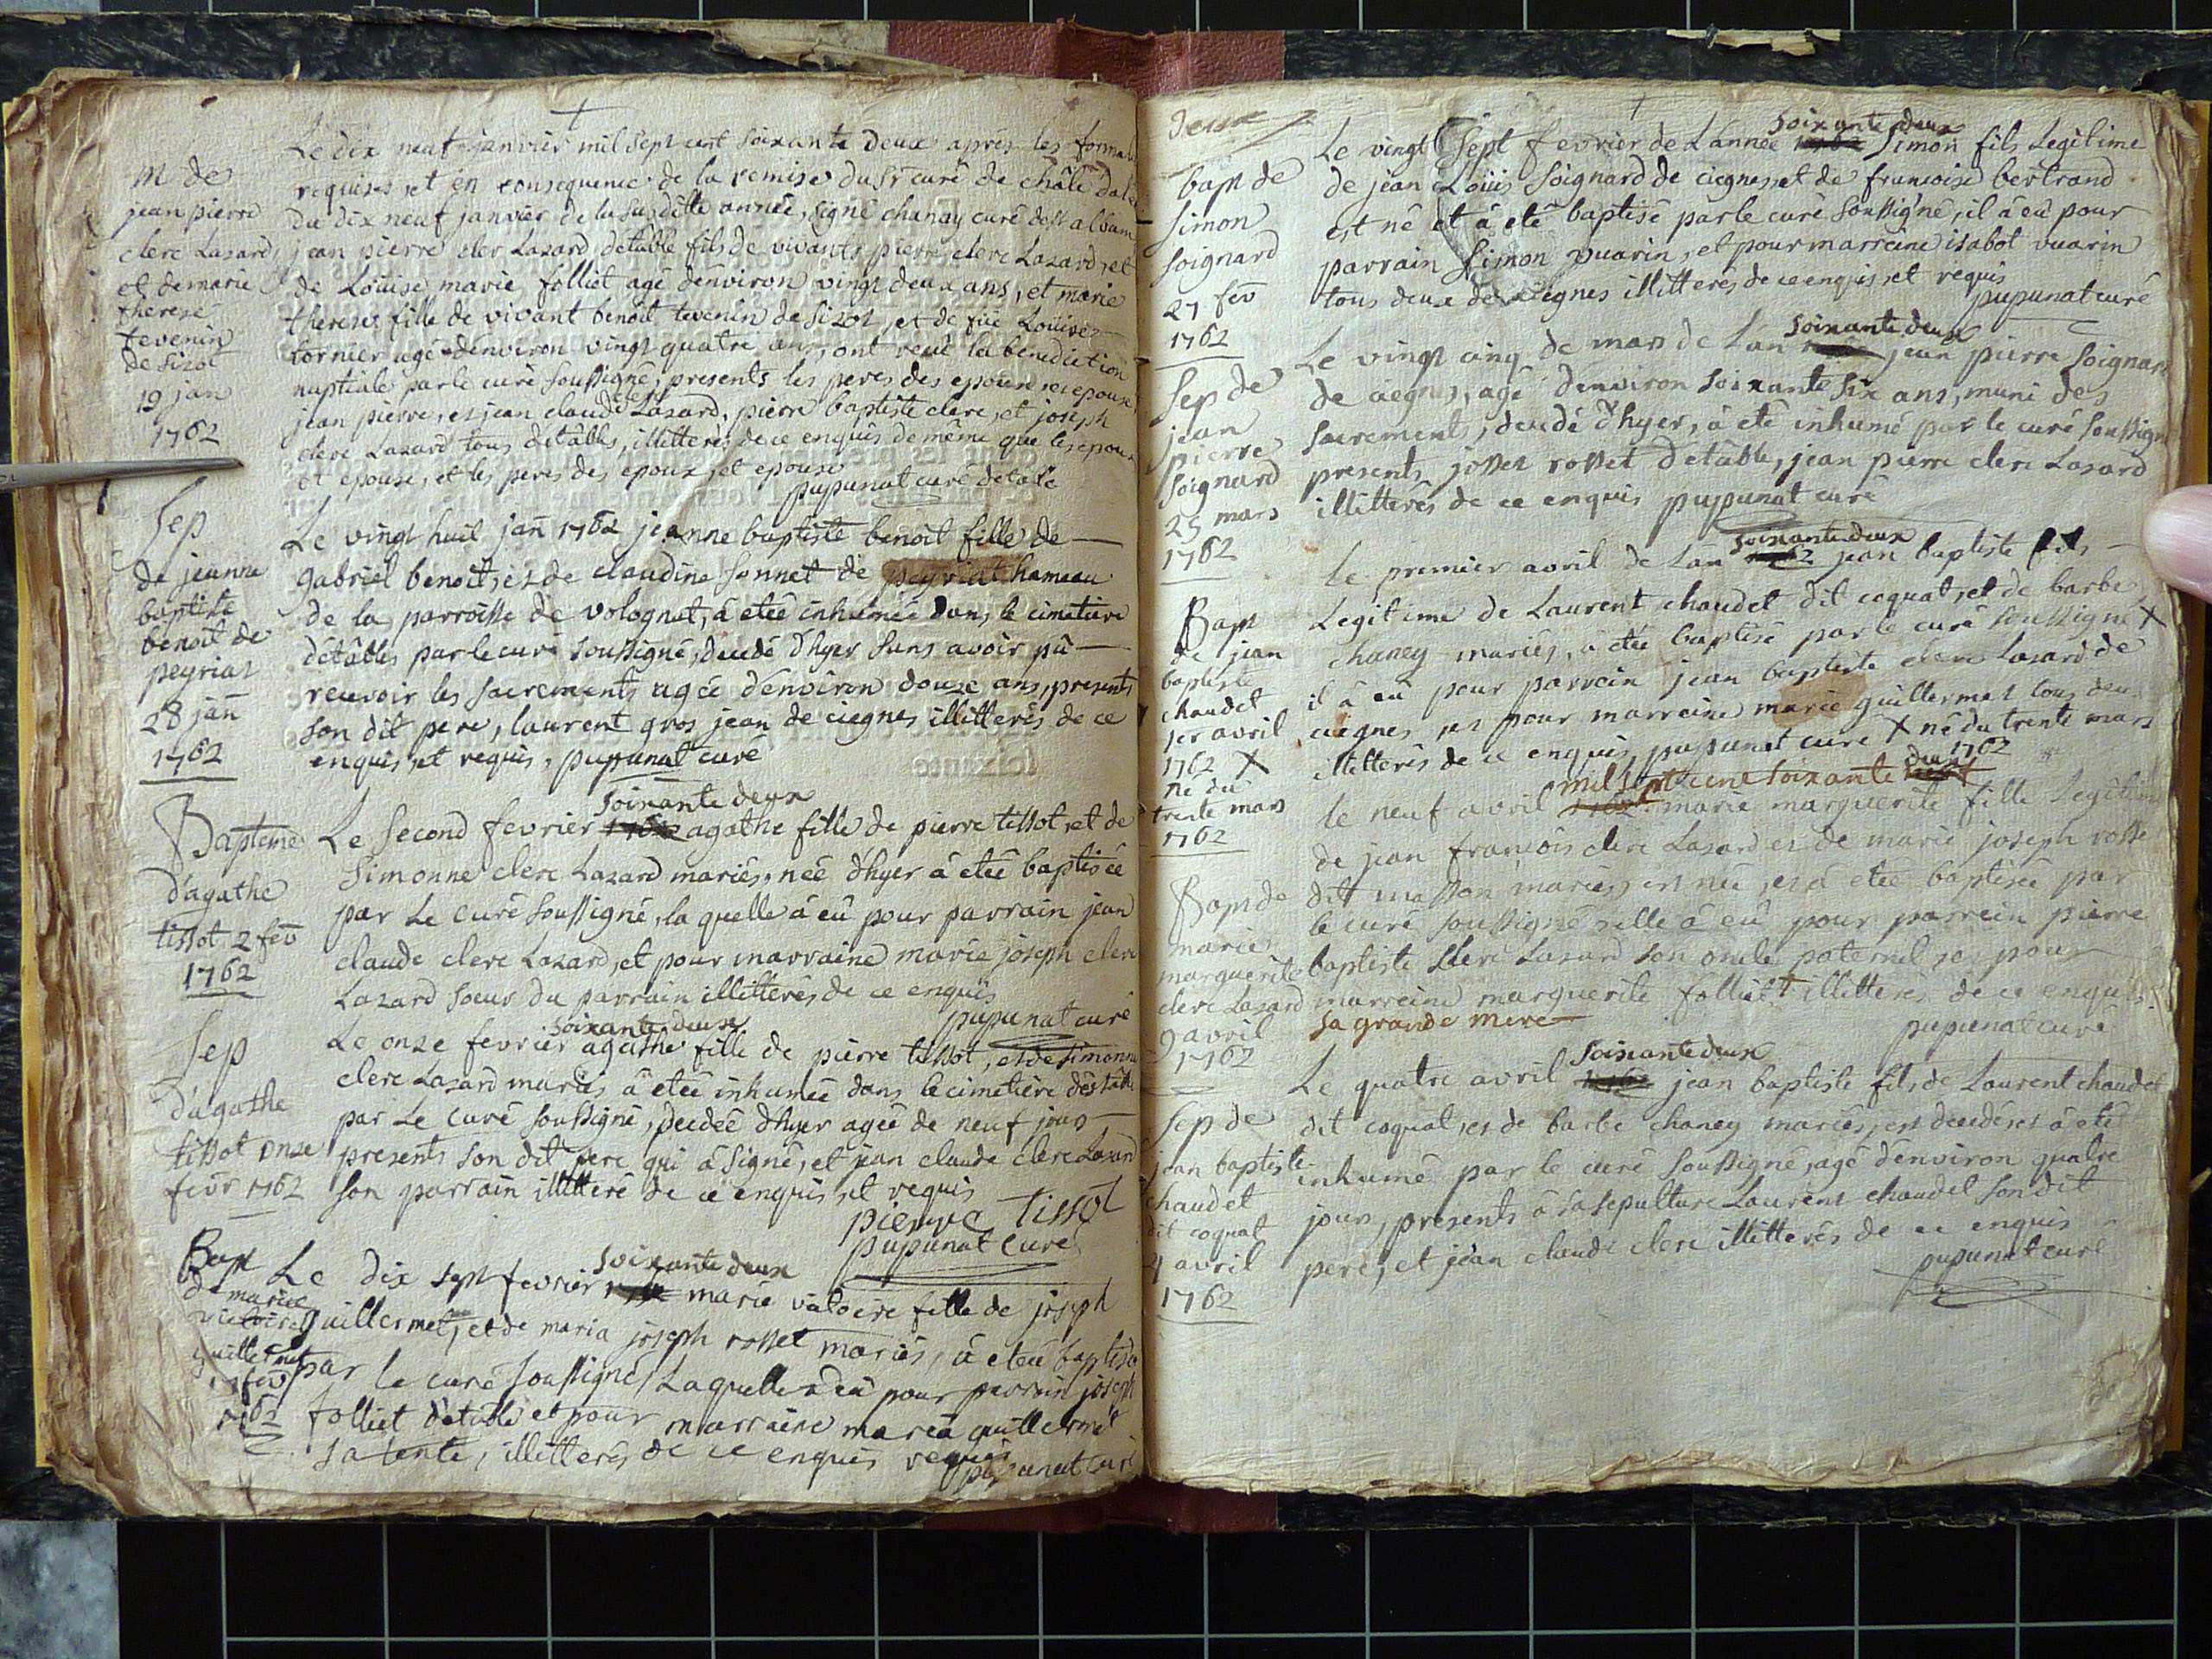 m de
jean pierre
clerc Lazard
et de marie
therese
tevenin
de Sizot
19 jan
1762
Le dix neuf janvier mil sept cent soixante deux après les
requises et en consequence de la remise du Sr curé de châle
du dix neuf janvier de la susditte année, signé chanay curé
jean pierre cler Lazard detâble fils de vivants pierre clerc Lazard, et
de Loüise marie folliet agé d'environ vingt deux ans, et marie
therese fille de vivant benoît tevenin de Sizot, et de füe Loüise
Lornier agé d'environ vingt quatre ans, ont reçu la benediction
nuptiale par le curé soussigné, presents les peres des epoux
jean pierre, et jean claude clerc Lazard, pierre baptiste clerc, et joseph
clerc Lazard tous detâbles, illitterés de ce enquis de même que les epoux
et epouse, et les peres des epoux, et epouse
pupunat curé detable
Sep
de jeanne
baptiste
benoit de
peyriat
28 jan
1762
Le vingt huit jan 1762 jeanne baptiste benoît fille de
gabriel benoit, et de claudine sonnet de peyriat hameau
de la parroisse de volognat, à etée inhumée dans le cimetiere
détâbles par le curé soussigné, decedé d'hyer sans avoir pû
recevoir les sacrements agée d'environ douze ans, presents
son dit pere, laurent gros jean de ciegnes illitterés de ce
enquis, et requis, pupunat cure
Bapteme
d'agathe
tissot 2 fev
1762
soixante deux
Le second fevrier 1762 agathe fille de pierre tissot, et de
Simonne clerc Lazard mariés, née d'hyer à etée baptisée
par Le curé soussigné, la quelle à eû pour parrain jean
claude clerc Lazard, et pour marraine marie joseph clerc
Lazard soeur du parrain illitterés de ce enquis
pupunat curé
Sep
d'agathe
tissot onze
fevr 1762
soixante deux
Le onze fevrier agathe fille de pierre tissot, et de simonne
clerc Lazard mariés à etée inhumée dans le cimetière
par Le curé soussigné, decedée d'hyer agée de neuf jours
presents son dit pere qui à signé, et jean claude clerc Lazard
son parrain illitteré de ce enquis et requis
pierre Tissot
pupunat curé
Bapt
de marie
victoire
guillermet
17 fev
1762
soixante deux
Le dix sept fevrier marie victoire fille de joseph
guillermet, et de maria joseph rosset mariés, à eteé baptisé
par le curé soussigné, Laquelle à eû pour parrain joseph
folliet détable et pour marraine maria guillermet
sa tente, illitterés, de ce enquis requis
pupunat curé
Deux
bapt de
simon
soignard
27 fev
1762
soixante deux
Le vingt sept fevrier de L'année 1762 Simon fils Legitime
de jean Loüis soignard de ciegnes, et de francoise bertrand
est né et à eté baptisé par le curé soussigné, il à eû pour
parrain simon vuarin, et pour marreine isabot vuarin
tous deux de ciegnes illitterés de ce enquis, et requis
pupunat curé
Sep de
jean
pierre
soignard
25 mars
1762
soixante deux
Le vingt cinq de mars de Lan jean pierre soignard
de ciegnes, agé d'environ soixante six ans, muni des
sacrements, decedé d'hyer, à eté inhumé par le curé soussigné
presents joseph rosset détâble, jean pierre clerc Lazard
illitterés de ce enquis pupunat curé
Bapt
de jean
baptiste
chaudet
1er avril
1762 X
né du
trente mars
1762
soixante deux
Le premier avril de Lan 1762 jean baptiste fils
Legitime de Laurent chaudet dit coquat, et de barbe
chaney mariés, à etée baptisé par le curé soussigné X
il à eû pour parrain jean baptiste clerc Lazard de
ciegnes, et pour marreine marie guillermet tous deux
illitterés de ce enquis pupunat cure X né du trente mars
1762
Bapt de
marie
marguerite
clerc Lazard
9 avril
1762
mil sept cent soixante deux
le neuf avril 1762 marie marguerite fille Legitime
de jean francois clerc Lazard et de marie joseph rosset
dit masson mariés, est née, et à etée baptisée par
le curé soussigné, elle à eû pour parrein pierre
baptiste clerc Lazard son oncle paternel, et pour
marreine marguerite folliet + illitterés de ce enquis
sa grande mere
pupunat curé
Sep de
jean baptiste
chaudet
dit coquat
4 avril
1762
soixante deux
Le quatre avril 1762 jean baptiste fils de Laurent chaudet
dit coquat, et de barbe chaney mariés, est decedé, et à eté
inhumé par le curé soussigné, agé d'environ quatre
jours, presents à sa sepulture Laurent chaudet son dit
pere, et jean claude clerc illitterés de ce enquis
pupunat curé